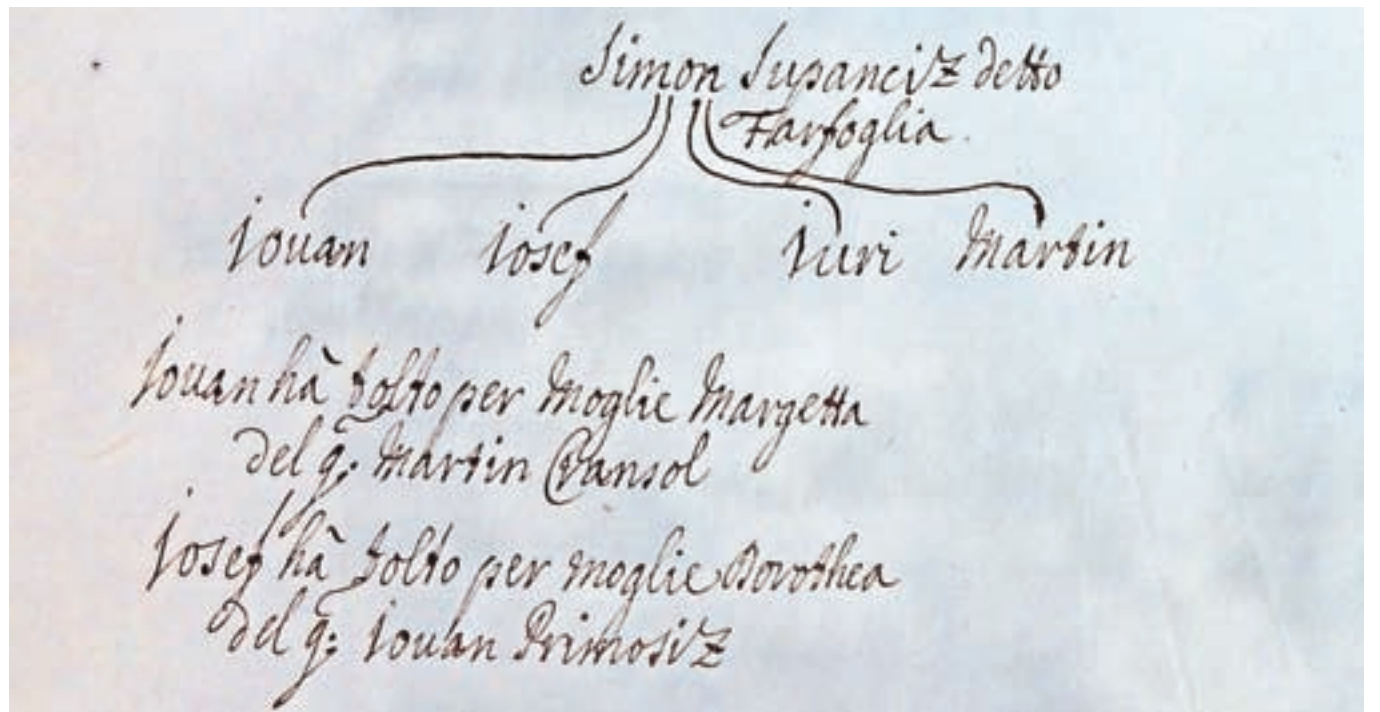 Simon Supanciz detto
Farfoglia.
Jouan Josef Juri Martin
Jouan hà tolto per Moglie Margetta
del q: Martin Cransol
Josef hà tolto per moglie Dorothea
del q: Jouan Primosiz